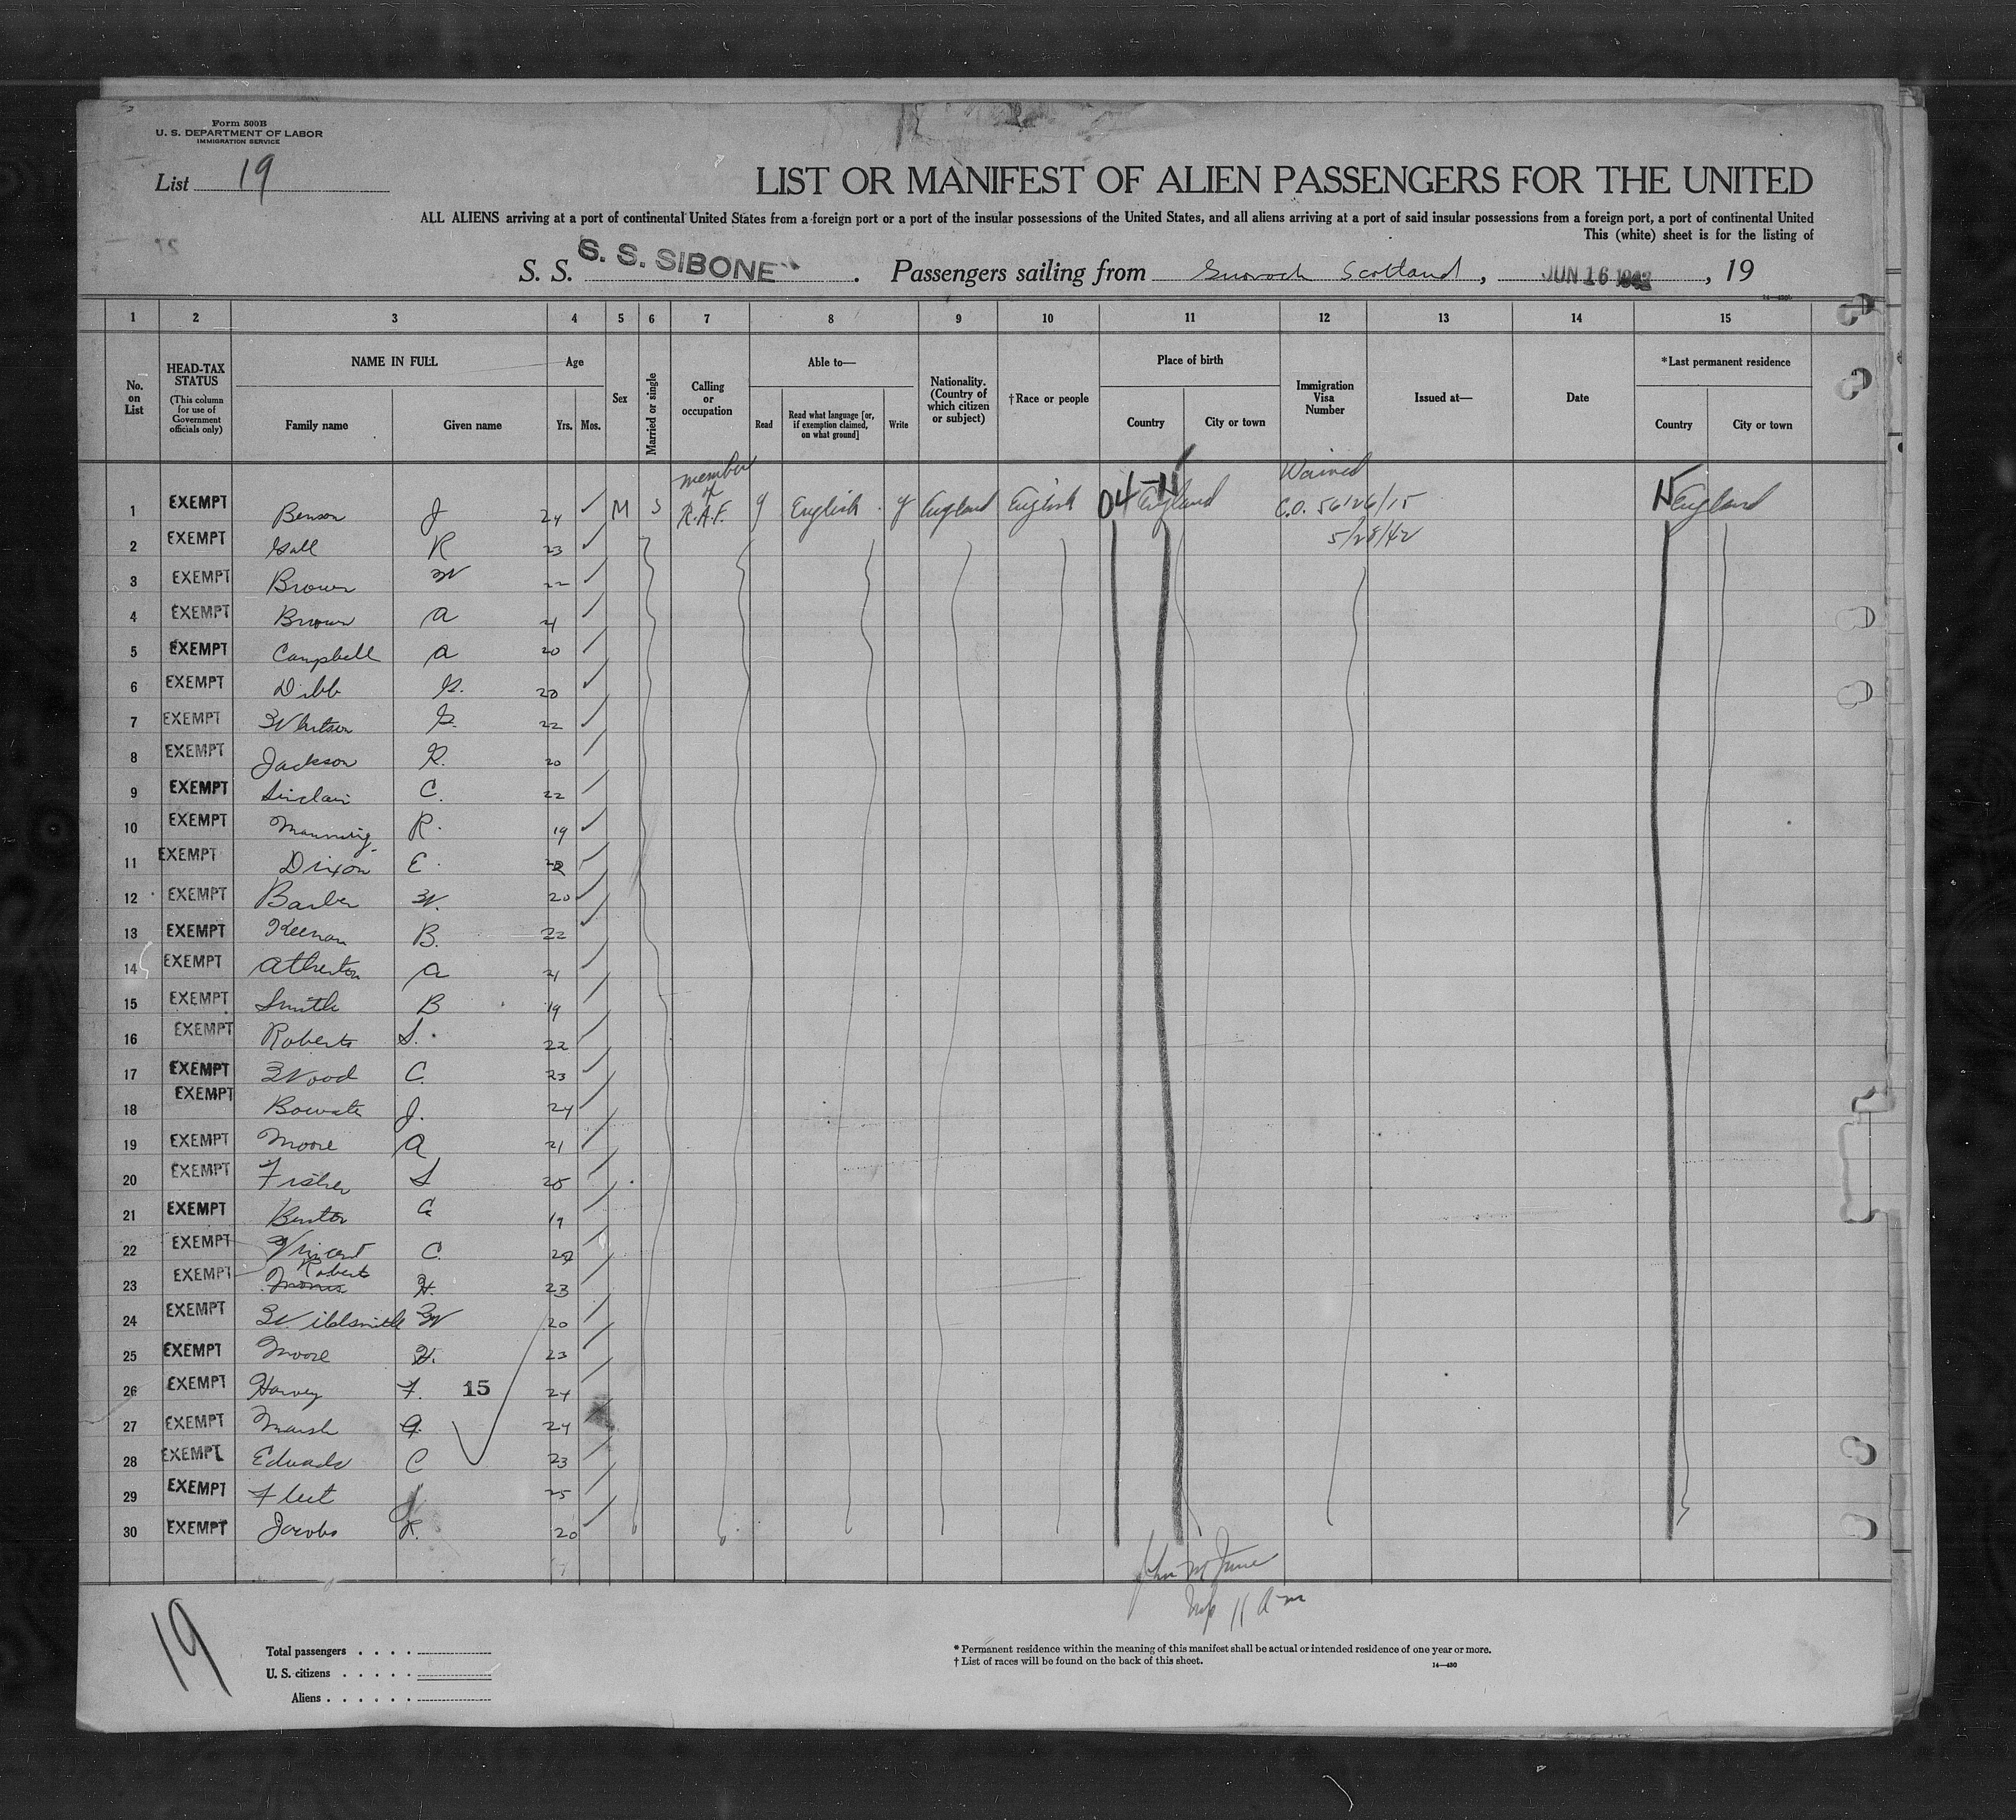 Form 500B
U. S. DEPARTMENT OF LABOR
IMMIGRATION SERVICE
List 19
LIST OR MANIFEST OF ALIEN PASSENGERS FOR THE UNITED
ALL ALIENS arriving at a port of continental United States from a foreign port or a port of the insular possessions of the United States, and all aliens arriving at a port of said insular possessions from a foreign port, a port of continental United
This (white) sheet is for the listing of
S. S. S. S. SIBONE . Passengers sailing from Scotland , JUN 16 , 19
1 2 3 4 5 6 7 8 9 10 11 12 13 14 15
No. on List
HEAD-TAX STATUS (This column for use of Government officials only)
NAME IN FULL
Family name Given name
Age
Yrs. Mos.
Sex
Married or single
Calling or occupation
Able to—
Read Read what language [or, if exemption claimed, on what ground] Write
Nationality. (Country of which citizen or subject)
†Race or people
Place of birth
Country City or town
Immigration Visa Number
Issued at—
Date
*Last permanent residence
Country City or town
1 EXEMPT Benson J 24 M S member of R.A.F. y English y England English 04-N England Waived C.O. 56126/15 N England
5/28/42
2 EXEMPT Gall R 23
3 EXEMPT Brown W 22
4 EXEMPT Brown A 21
5 EXEMPT Campbell A 20
6 EXEMPT Dibb G. 20
7 EXEMPT G. 22
8 EXEMPT Jackson R. 20
9 EXEMPT Sinclair C. 22
10 EXEMPT Manning R. 19
11 EXEMPT Dixon E.
12 EXEMPT Barber W. 20
13 EXEMPT Keenan B. 22
14 EXEMPT Atherton A 21
15 EXEMPT Smith B 19
16 EXEMPT Roberts S. 22
17 EXEMPT Wood C. 23
18 EXEMPT J. 24
19 EXEMPT Moore A 21
20 EXEMPT Fisher S 25
21 EXEMPT G 19
22 EXEMPT Vincent C.
23 EXEMPT Roberts H. 23
24 EXEMPT Wildsmith W 20
25 EXEMPT Moore H. 23
26 EXEMPT Harvey F. 15 24
27 EXEMPT Marsh G. 24
28 EXEMPT Edwards C 23
29 EXEMPT Fleet J 25
30 EXEMPT Jacobs R. 20
11 am
19
Total passengers
U. S. citizens
Aliens
* Permanent residence within the meaning of this manifest shall be actual or intended residence of one year or more.
† List of races will be found on the back of this sheet.
14—430